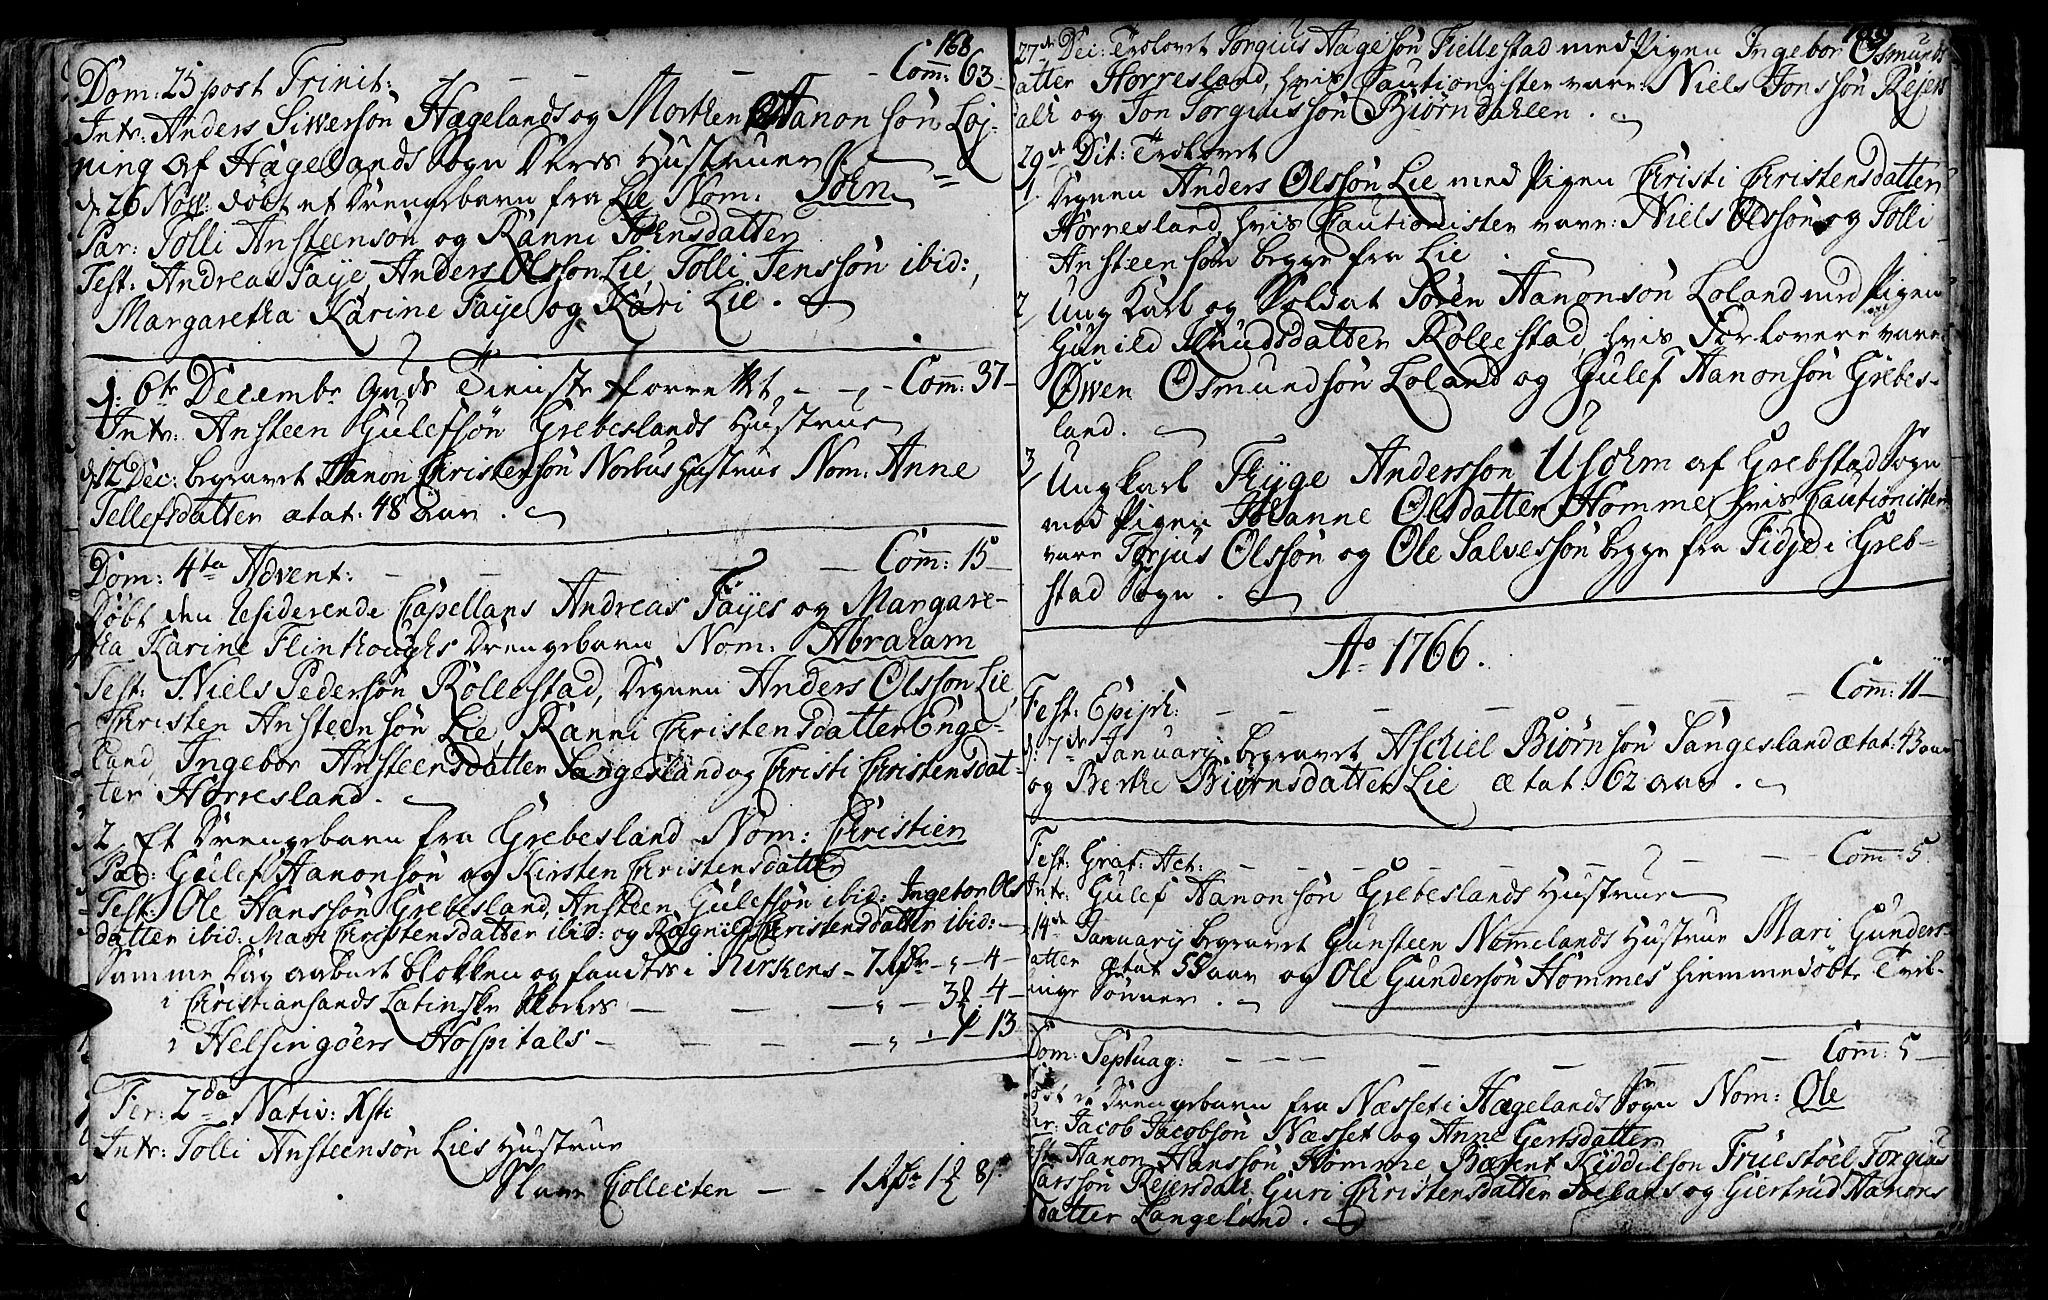 168
Dom: 25 post Trinit: Comm: 63
Intr: Anders Siwersøn Hægelands og Morthen Aanonsøn Løj-
ning af Hægelands Sogn Deres Hustruer
d. 26 Nov: døbt et Drengebarn fra Lie Nom: John
Par: Tolli Ansteensøn og Ranni Johnsdatter
Test: Andreas Faye, Anders Olsson Lie, Tolli Jenssøn ibid:,
Margaretha Karine Faye og Kari Lie.
d: 6te Decembr Guds Tieneste forrettet, Comm: 37
Intr: Ansteen Gulefsøn Grebeslands Hustrue
d. 12 Dec: begravet Aanon Christensøn Norbus Hustrue Nom: Anne
Tellefsdatter ætat: 48 Aar.
Dom: 4ta Advent: Comm: 15
Døbt den residerende Capellans Andreas Fayes og Margare-
tha Karine Flinthoughs Drengebarn Nom: Abraham
Test: Niels Pedersøn Røllestad, Degnen Anders Olsson Lie,
Christen Ansteensøn Lie, Ranni Christensdatter Enge-
land, Ingebor Ansteensdatter Sangesland og Christi Christensdat-
ter Horresland.
2, Et Drengebarn fra Grebesland Nom: Christien
Par: Gulef Aanonsøn og Kirsten Christensdatter
Test: Ole Hanssøn Grebesland, Ansteen Gulefsøn ibid: Ingebor Ols
datter ibid: Mari Christensdatter ibid: og Ragnild Christensdatter ibid:
Samme Dag aabnet blokken og fandtes i Kirkens - 7 Rdr - " - 4 -
i Christiansands Latinske Skoles - " - 3 4 -
i Helsingøers Hospitals - " - 13
Fer: 2da Nativ: Xsti
Intr: Tolli Ansteensøn Lies Hustrue
Collecten - - 1 Rdr 1 8
27de Dec: Trolovet Torgius Aagesøn Fiellestad med Pigen Ingebor Osmunds
datter Horresland, hvis Cautionister vare: Niels Jonssøn Rejers
dal og Jon Torgiussøn Biørndahlen.
29de Dit: Trolovet
1. Degnen Anders Olssøn Lie med Pigen Christi Christensdatter
Horresland, hvis Cautionister vare: Niels Olssøn og Tolli
Ansteensøn begge fra Lie
2, Ung Karl og Soldat Søren Aanonsøn Loland med Pigen
Gunild Knudsdatter Røllestad, hvis Forlovere vare
Øwen Osmundsøn Loland og Gulef Aanonsøn Grebes-
land.
3, Ung Karl Thyge Andersson Usohm af Grebstad Sogn
med Pigen Johanne Olsdatter Homme, hvis Cautionister
vare Torjus Olssøn og Ole Salvessøn begge fra Fidje i Greb-
stad Sogn.
Ao 1766.
Fest: Epiph: Comm: 11
d: 7de Januarij begravet Aschiel Biørnsøn Sangesland ætat: 43 aar
og Berthe Biørnsdatter Lie ætat: 62 aar.
Fest: Graf: Act: Comm: 5
Intr: Gulef Aanonsøn Grebeslands Hustrue
14de Januarij begravet Gunsteen Nommelands Hustrue Mari Gunders-
datter ætat 59 aar og Ole Gundersøn Hommes hiemmedøbte Tvil-
linge Sønner.
Dom: Septuag: Comm: 5
Døbt et Drengebarn fra Næsset i Hægelands Sogn Nom: Ole
Par: Jacob Jacobsøn Næsset og Anne Gertsdatter
Test: Aanon Hanssøn Homme, Bærent Kiddilson Fruestøel, Torgius
Larssøn Rejersdal, Guri Christensdatter og Giertrud Aanons
datter Langeland.